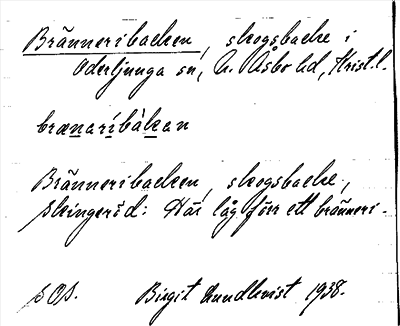 Bränneribacken, skogsbacke i
Oderljunga sn, N. Åsbo hd, Krist. l.
brænaríbàkan
Bränneribacken, skogsbacke,
Skingeröd: Här låg förr ett bränneri.
SOS. Birgit Lundkvist 1938.